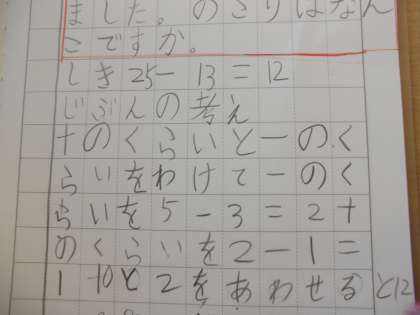 ました。のこりはなん
こですか。
しき25-13=12
じぶんの考え
十のくらいと一のく
らいをわけて一のく
らいを5-3=2十
のくらいを2-1=
1 10と2をあわせると12